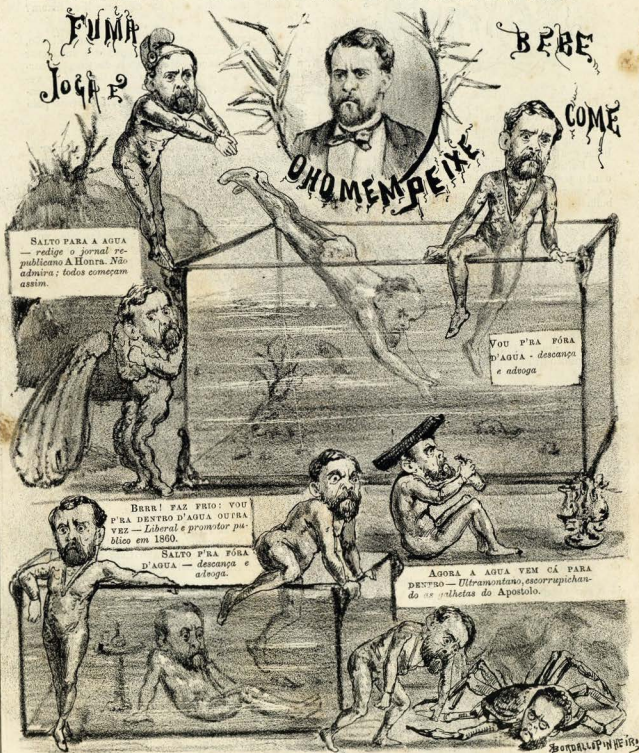 FUMA
JOGA E
BEBE
COME
O HOMEM PEIXE
SALTO PARA A AGUA
— redige o jornal re-
publicano A Honra. Não
admira; todos começam
assim.
VOU P'RA FÓRA
D'AGUA - descança
e advoga
BRRR! FAZ FRIO: VOU
P'RA DENTRO D'AGUA OUTRA
VEZ — Liberal e promotor pu-
blico em 1860.
SALTO P'RA FÓRA
D'AGUA — descança e
advoga.
AGORA A AGUA VEM CÁ PARA
DENTRO — Ultramontano, escorrupichan-
do as galhetas do Apostolo.
BORDALLO PINHEIRO